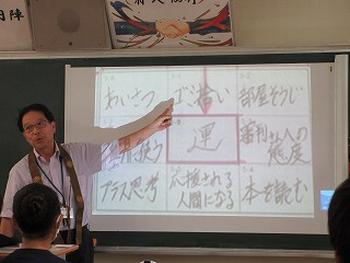 あいさつ
ゴミ拾い
部屋そうじ
運
審判さんへの
態度
プラス思考
応援される
人間になる
本を読む